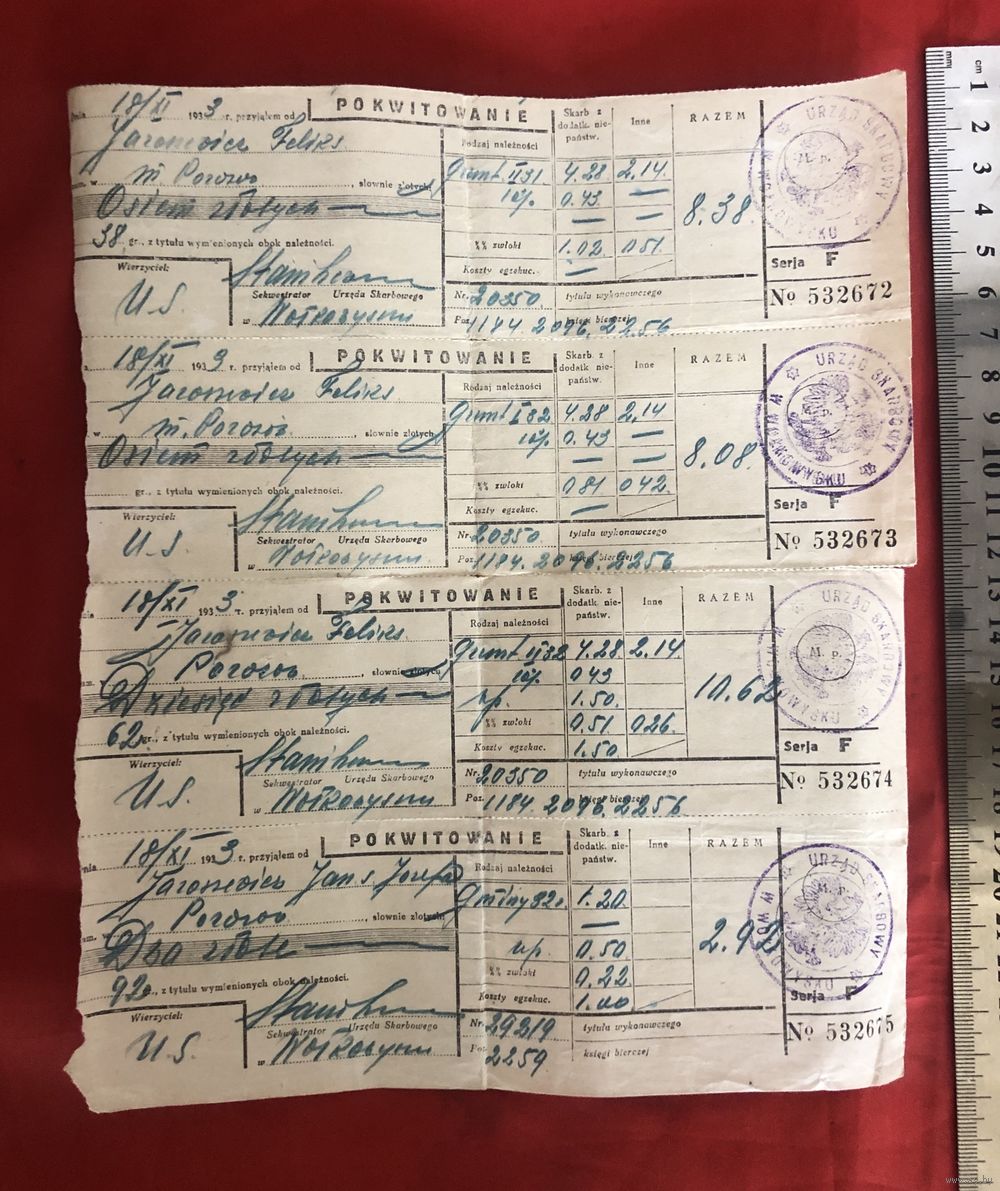 dnia 18/XI 1933 r. przyjąłem od
POKWITOWANIE
Jarosiewicz Feliks
m Porozowo, słownie złotych
Osiem złotych
38 gr., z tytułu wymienionych obok należności.
Wierzyciel:
U.S.
Sekwestrator Urzędu Skarbowego
w Wołkowysku
Rodzaj należności
Skarb z dodatk. nie-państw.
Inne
RAZEM
Grunt II 31 4.28 2.14
10% 0.43 —
— —
8.38
%% zwłoki 1.02 0.51
Koszty egzekuc. —
Nr. 20350 tytułu wykonawczego
Poz. 1184. 2096. 2256 księgi bierczej
URZĄD SKARBOWY W WOŁKOWYSKU
M. P.
Serja F
No 532672
18/XI 1933 r. przyjąłem od
POKWITOWANIE
Jarosiewicz Feliks
w m. Porozowo, słownie złotych
Osiem złotych
gr., z tytułu wymienionych obok należności.
Wierzyciel:
U.S.
Sekwestrator Urzędu Skarbowego
w Wołkowysku
Rodzaj należności
Skarb. z dodatk nie-państw.
Inne
RAZEM
Grunt I 32 4.28 2.14
10% 0.43 —
— —
8.08
%% zwłoki 0.81 0.42
Koszty egzekuc. —
Nr. 20350 tytułu wykonawczego
Poz. 1184. 2096. 2256 księgi bierczej
URZĄD SKARBOWY W WOŁKOWYSKU
M. P.
Serja F
No 532673
18/XI 1933 r. przyjąłem od
POKWITOWANIE
Jarosiewicz Feliks
Porozowo, słownie złotych
Dziesięć złotych
62 gr., z tytułu wymienionych obok należności.
Wierzyciel:
U.S.
Sekwestrator Urzędu Skarbowego
w Wołkowysku
Rodzaj należności
Skarb. z dodatk. nie-państw.
Inne
RAZEM
Grunt II 32 4.28 2.14
10% 0.43
up. 1.50
10.62
%% zwłoki 0.51 0.26
Koszty egzekuc. 1.50
Nr. 20350 tytułu wykonawczego
Poz. 1184. 2096. 2256 księgi bierczej
URZĄD SKARBOWY W WOŁKOWYSKU
M. P.
Serja F
No 532674
18/XI 1933 r. przyjąłem od
POKWITOWANIE
Jarosiewicz Jan s. Józefa
Porozowo, słownie złotych
Dwa złote
92 gr., z tytułu wymienionych obok należności.
Wierzyciel:
U.S.
Sekwestrator Urzędu Skarbowego
w Wołkowysku
Rodzaj należności
Skarb. z dodatk. nie-państw.
Inne
RAZEM
Gminy 32 1.20
—
up. 0.50
2.92
%% zwłoki 0.22
Koszty egzekuc. 1.00
Nr. 29219 tytułu wykonawczego
Poz. 2259 księgi bierczej
URZĄD SKARBOWY W WOŁKOWYSKU
M. P.
Serja F
No 532675